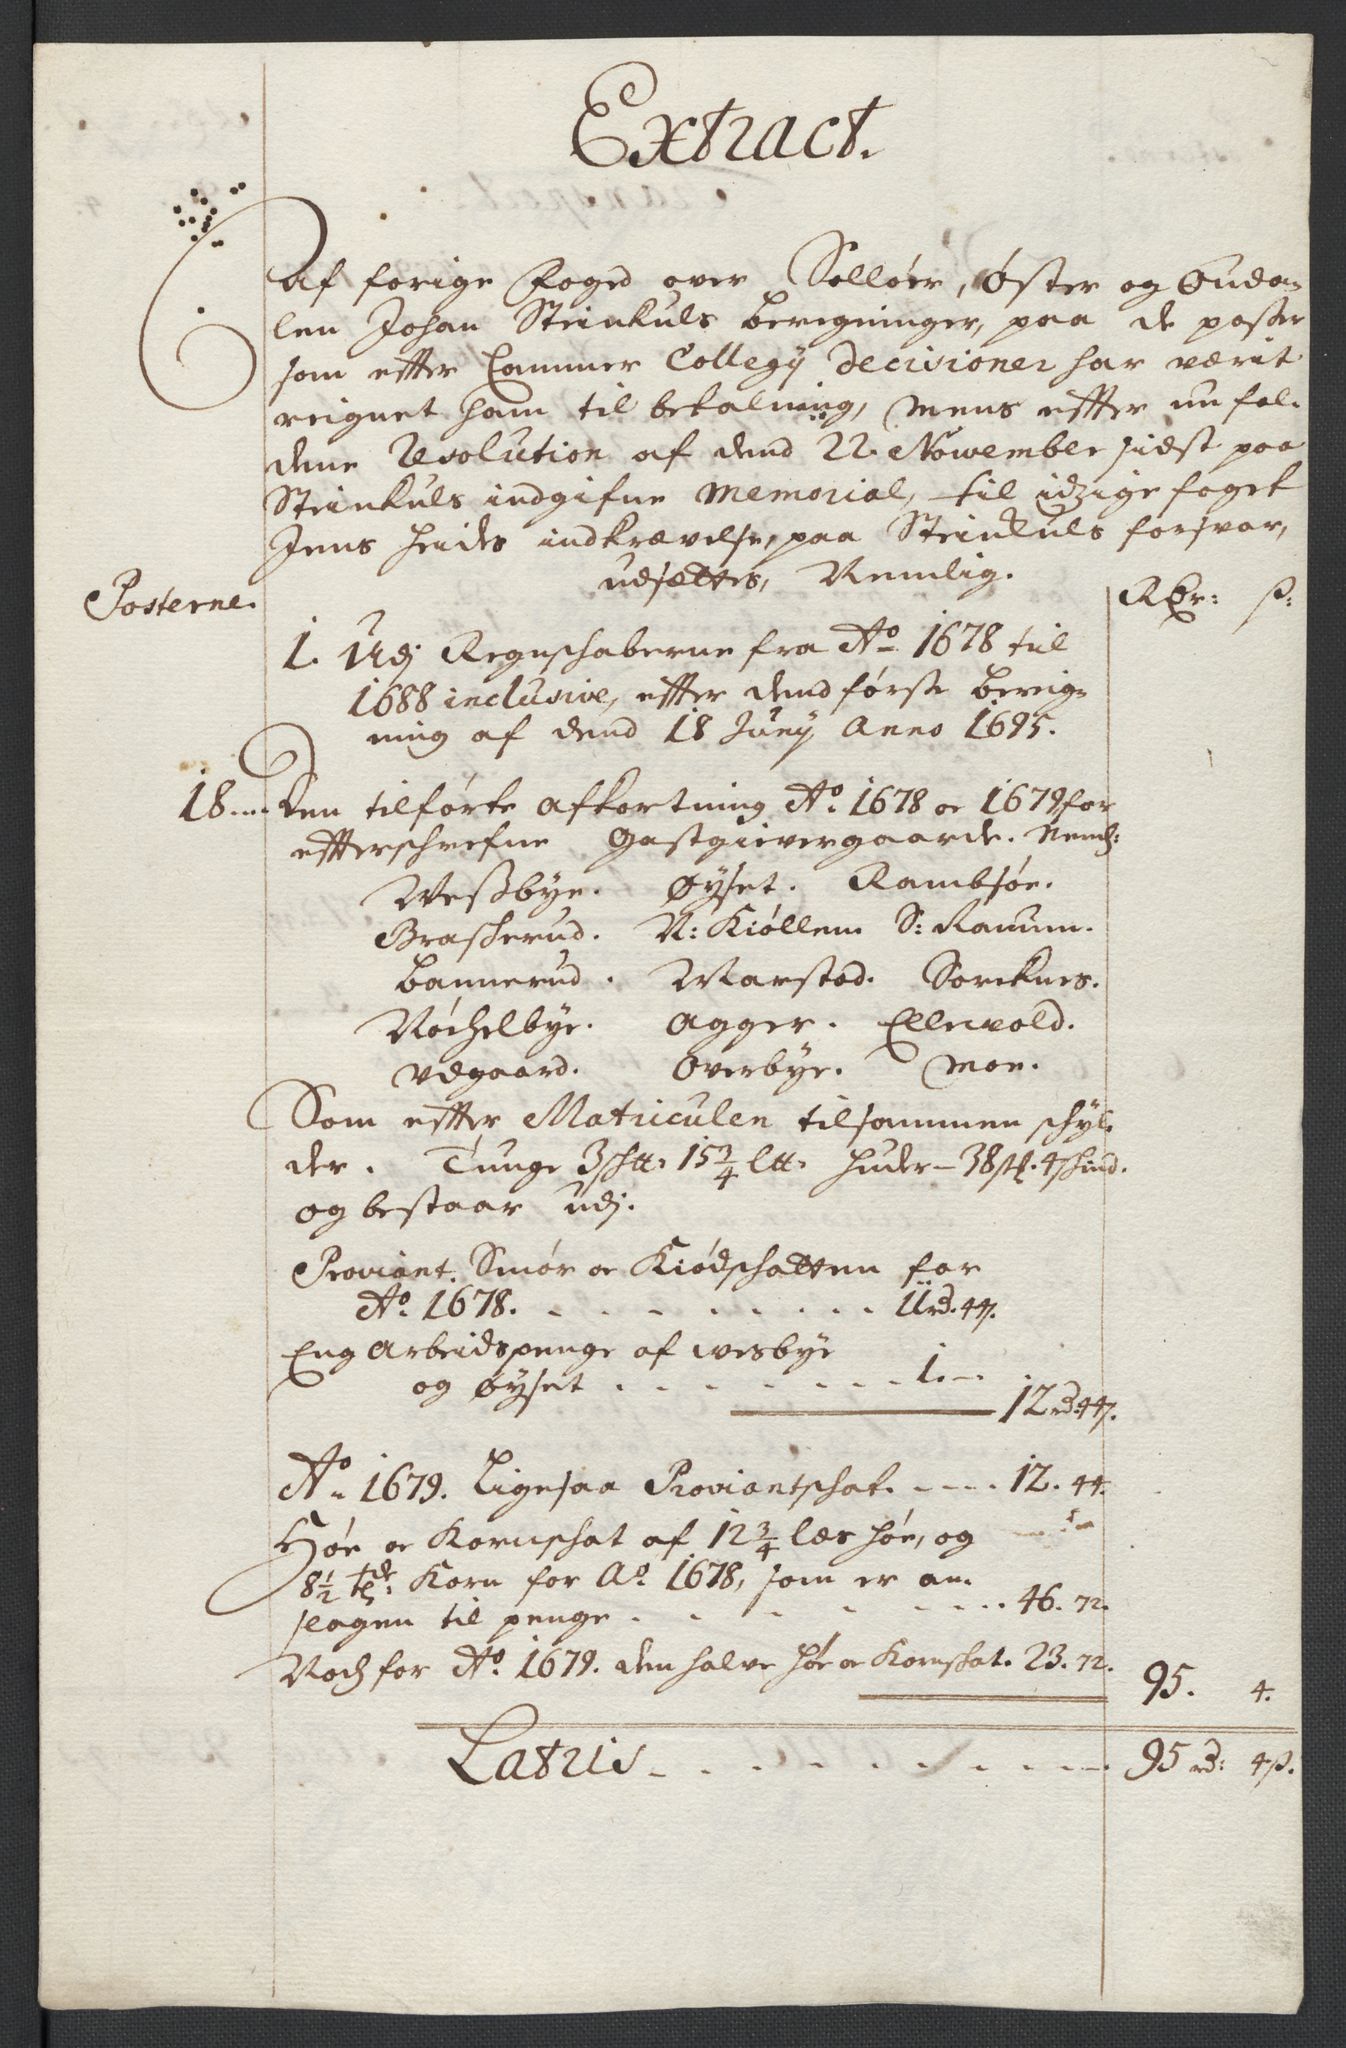 Extract.
Af forige Foged over Solløer, Øster og Ouda-
len Johan Steinkuls beregninger, paa de poster
som effter Cammer Collegij Decisioner har verit
reignet ham til betalning, mens effter nu fal-
dene Resolution af dend 22. Nowember sidst paa
Steinkuls indgifne Memorial, til idzige foget
Jens Heides indkrævelse, paa Steinkuls forsvar,
udsættes, Nemlig.
Posterne. Rdr: ß:
1. Udj Regnschaberne fra Ao 1678 til
1688 inclusive, effter dend første bereig-
ning af dend 18 Junij Anno 1695.
18... Den tilførte afkortning Ao. 1678 oc 1679 for
effterschrefne Gastgievergaarde. Neml:
Wessbye. Øyset. Rambsøe.
Brascherud. N: Kiøllem S: Ramum.
bannerud. Warstad. Sorcknes.
Nøchelbye. Agger. Ellevold.
Vdgaard. Overbye. Moe.
Som effter Matriculen tilsammen schyl-
der. Tunge 3 sch℔: 15 3/4 l℔: Huder - 38 st. 4 schind.
og bestaar udj.
Proviant. Smør oc Kiødschatten for
Ao. 1678. . . . . . . . . 11 rd. 44.
Eng arbeidspenge af wesbye
og Øyset . . . . . . . 1. -
12 rd. 44.
Ao. 1679. Ligesaa Proviantschat. . . . . 12. 44.
Høe oc Kornschat af 12 3/4 læs høe, og
8 1/2 tdr: Korn for Ao. 1678, som er an-
slagen til penge . . . . . . . 46. 72.
Noch for Ao. 1679. den halve høe oc Kornschat. 23. 72.
95. 4.
Lateris . . . . . . . . . 95 rd: 4 ß.